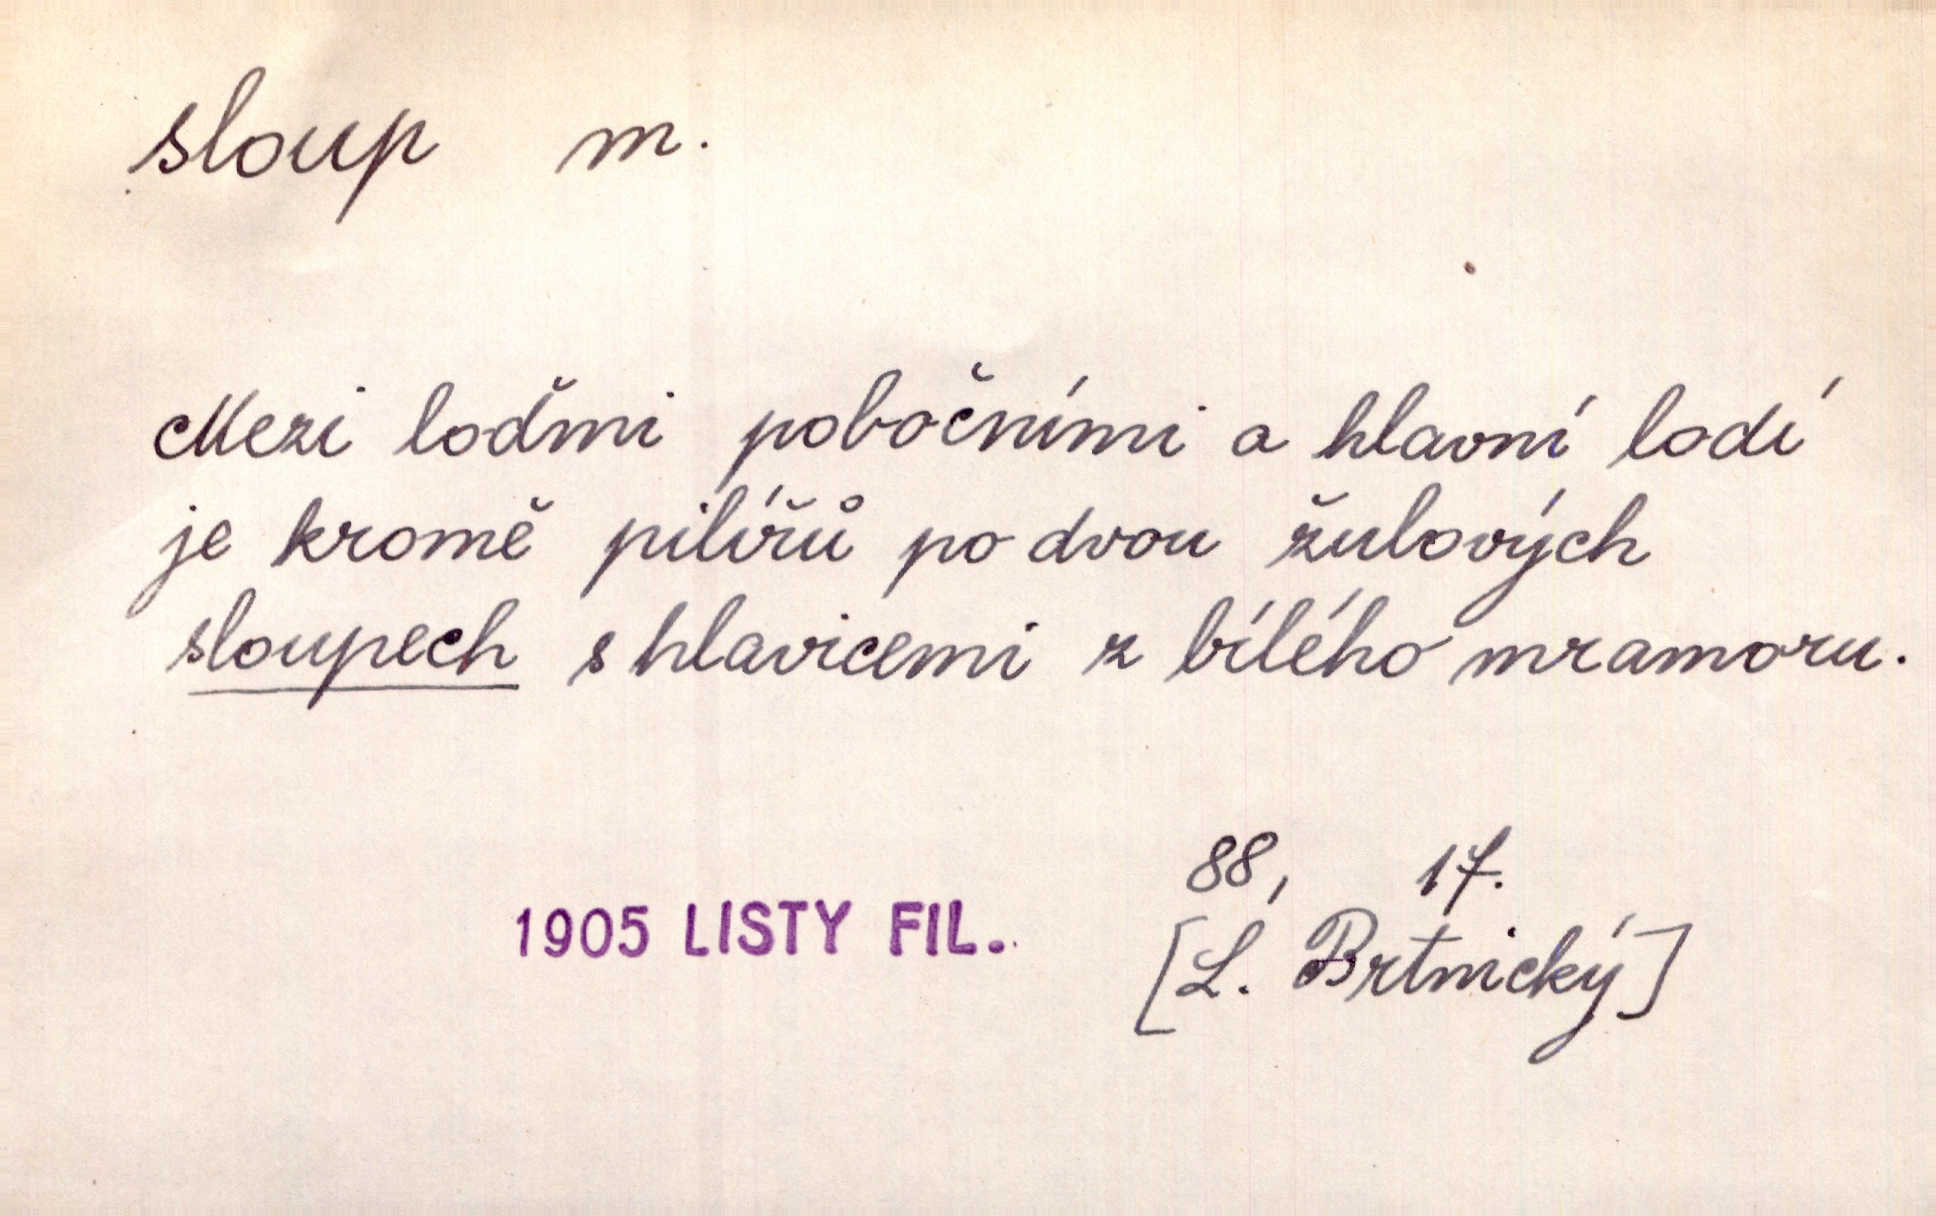 sloup m.
Mezi loďmi pobočními a hlavní lodí
je kromě pilířů po dvou žulových
sloupech s hlavicemi z bílého mramoru.
88, 17.
1905 LISTY FIL.
[L. Brtnický]